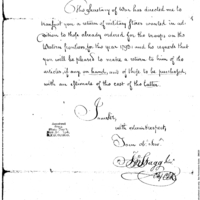 The Secretary of War has directed me to
transmit you a return of military stores wanted in ad-
dition to those already ordered for the troops on the
Western frontiers for the year 1792. and he requests that
you will be pleased to make a return to him of the
articles, if any on hand, and of those to be purchased,
with an estimate of the cost of the latter.
I am Sir,
with esteem & respect,
Your ob. Serv.